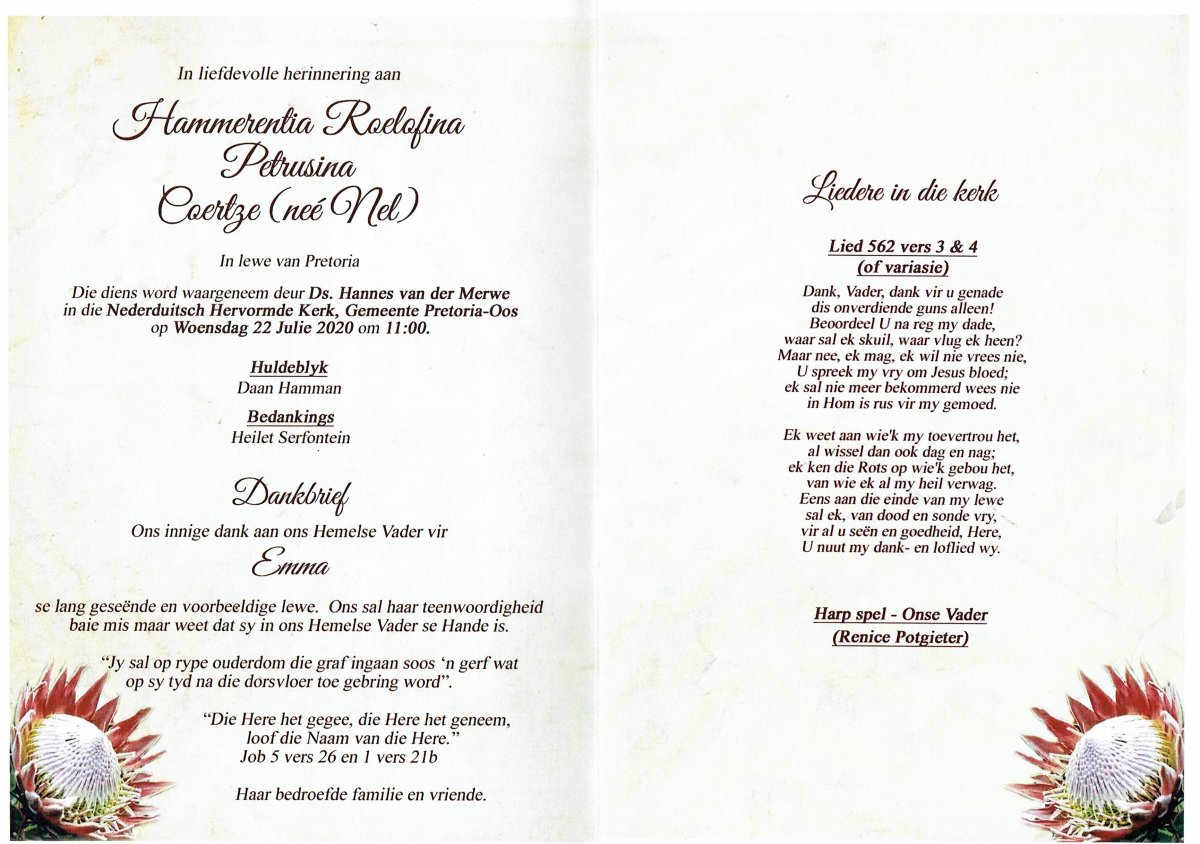 In liefdevolle herinnering aan
Hammerentia Roelofina
Petrusina
Coertze (neé Nel)
In lewe van Pretoria
Die diens word waargeneem deur Ds. Hannes van der Merwe
in die Nederduitsch Hervormde Kerk, Gemeente Pretoria-Oos
op Woensdag 22 Julie 2020 om 11:00.
Huldeblyk
Daan Hamman
Bedankings
Heilet Serfontein
Dankbrief
Ons innige dank aan ons Hemelse Vader vir
Emma
se lang geseënde en voorbeeldige lewe.  Ons sal haar teenwoordigheid
baie mis maar weet dat sy in ons Hemelse Vader se Hande is.
“Jy sal op rype ouderdom die graf ingaan soos ‘n gerf wat
op sy tyd na die dorsvloer toe gebring word”.
“Die Here het gegee, die Here het geneem,
loof die Naam van die Here.”
Job 5 vers 26 en 1 vers 21b
Haar bedroefde familie en vriende.
Liedere in die kerk
Lied 562 vers 3 & 4
(of variasie)
Dank, Vader, dank vir u genade
dis onverdiende guns alleen!
Beoordeel U na reg my dade,
waar sal ek skuil, waar vlug ek heen?
Maar nee, ek mag, ek wil nie vrees nie,
U spreek my vry om Jesus bloed;
ek sal nie meer bekommerd wees nie
in Hom is rus vir my gemoed.
Ek weet aan wie'k my toevertrou het,
al wissel dan ook dag en nag;
ek ken die Rots op wie'k gebou het,
van wie ek al my heil verwag.
Eens aan die einde van my lewe
sal ek, van dood en sonde vry,
vir al u seën en goedheid, Here,
U nuut my dank- en loflied wy.
Harp spel - Onse Vader
(Renice Potgieter)